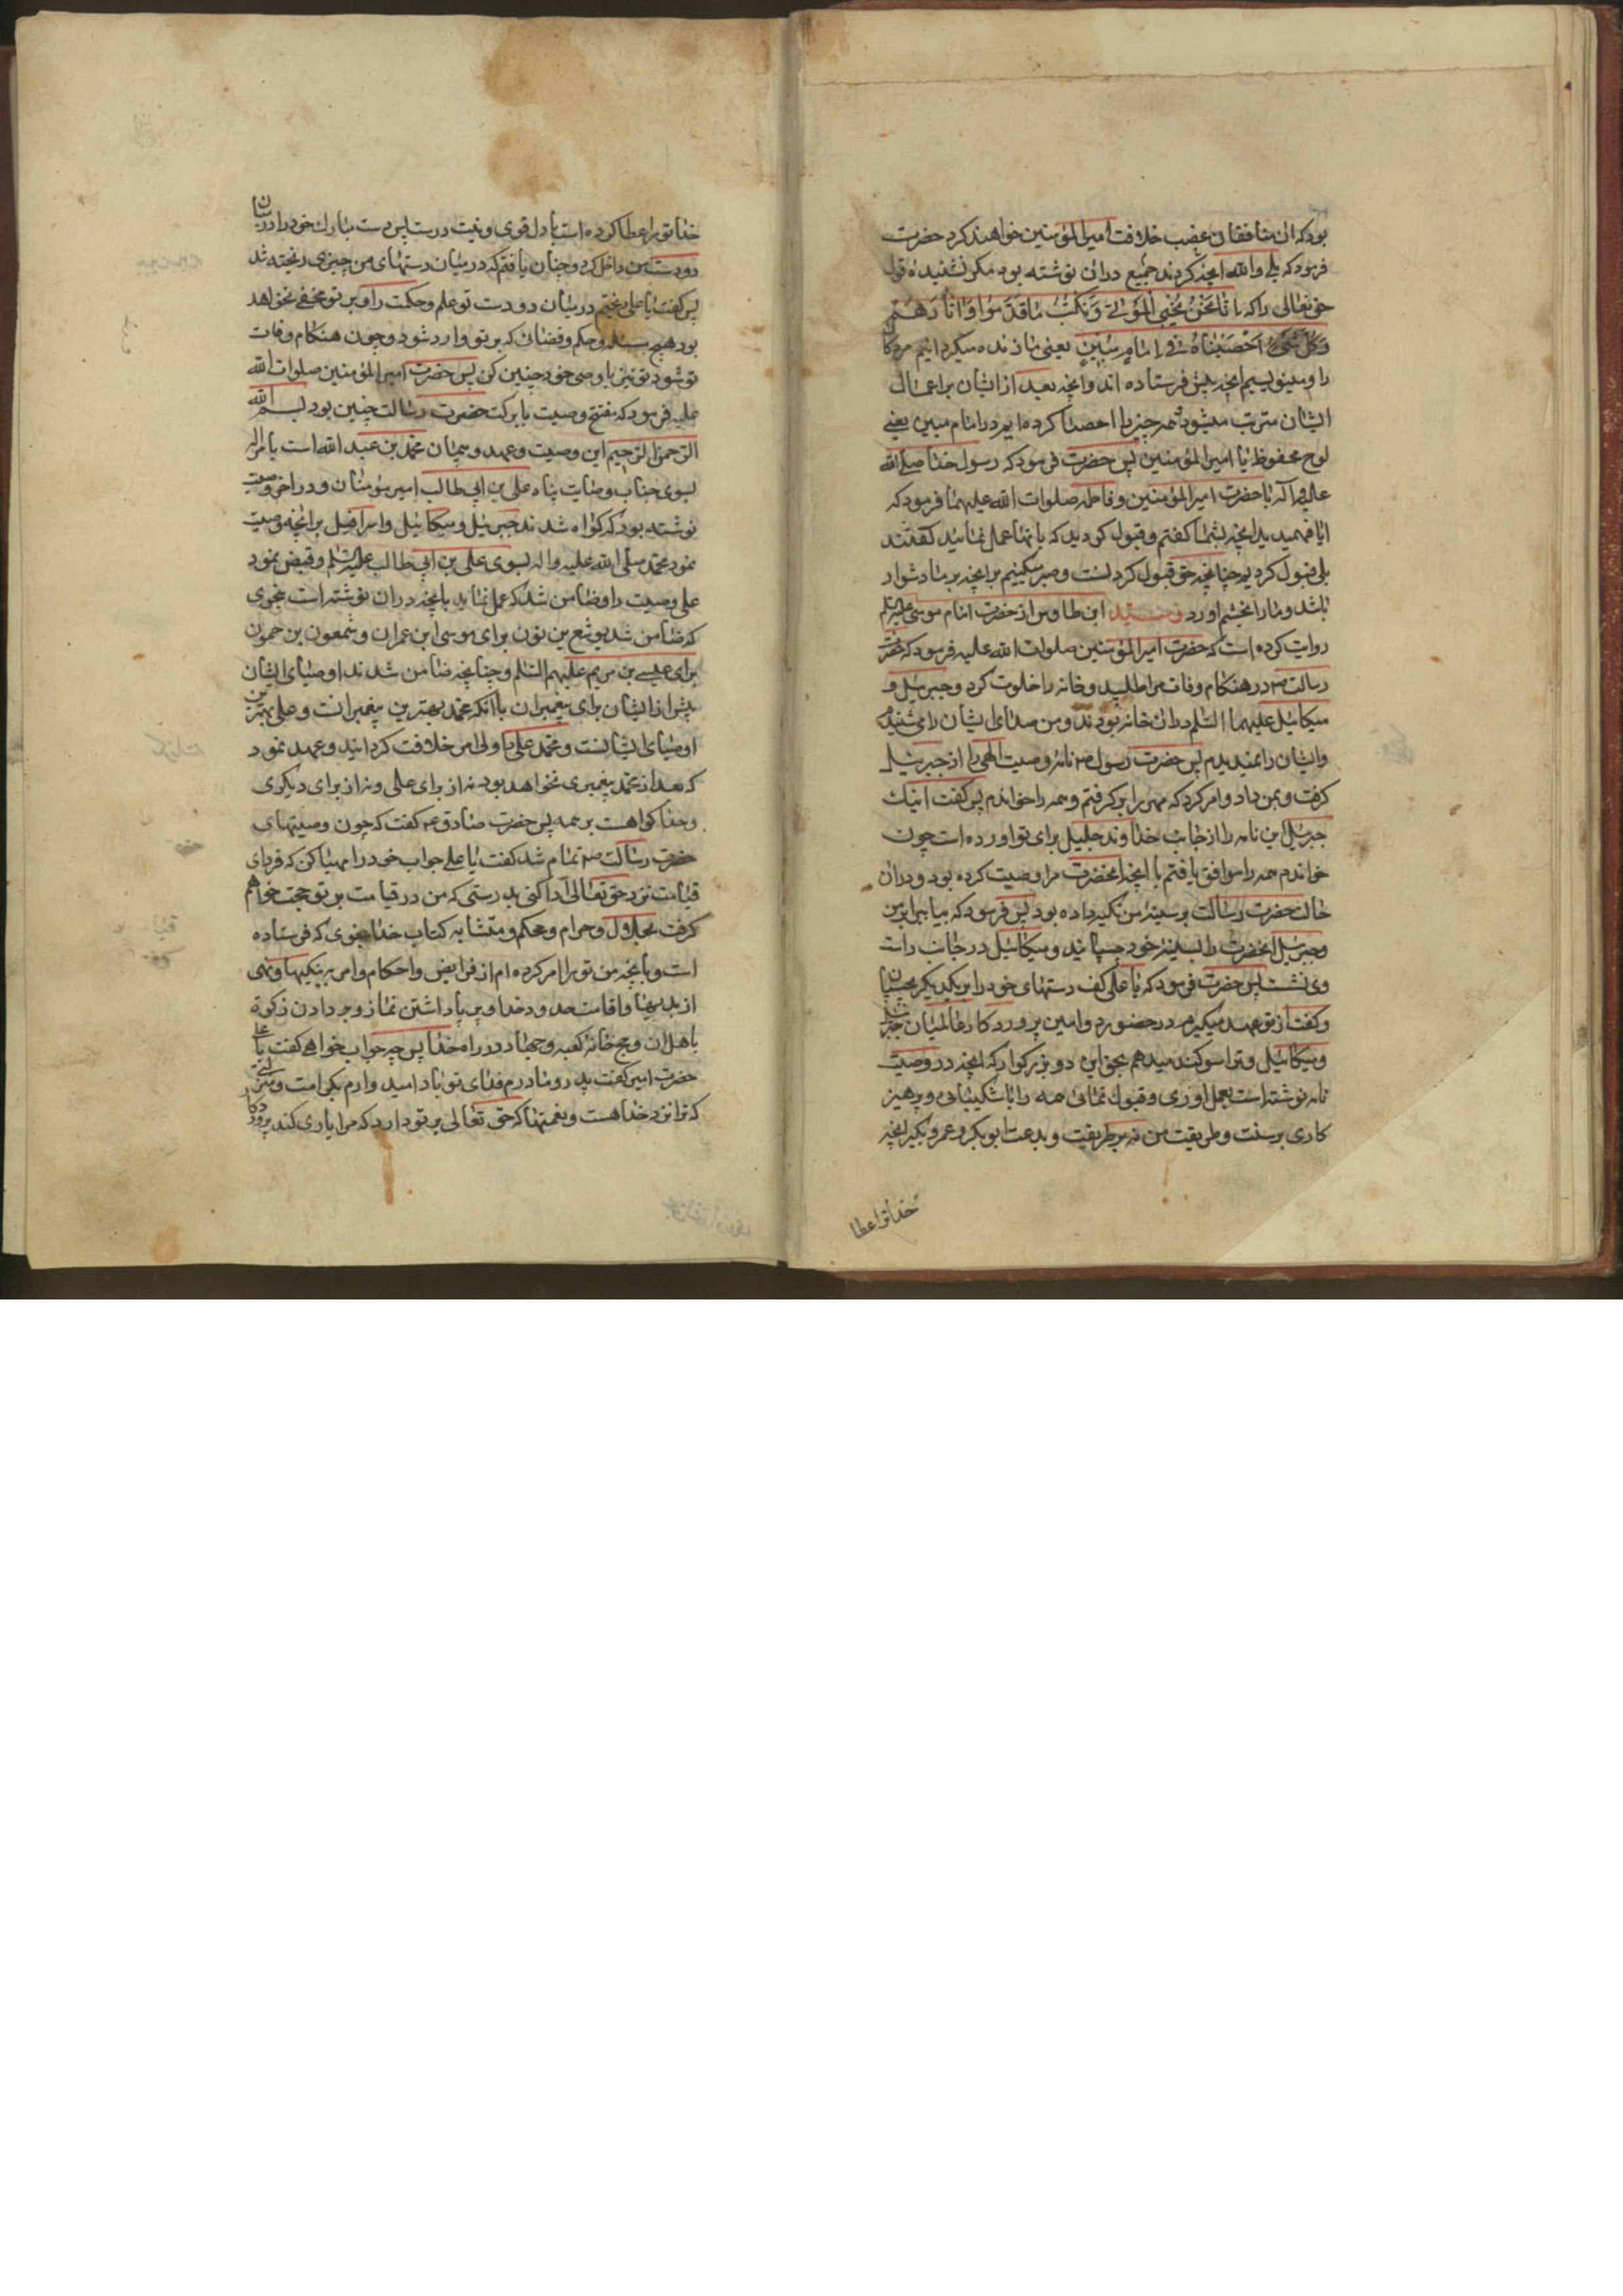 بود که آن منافقان غصب خلافت امیرالمؤمنین خواهند کرد حضرت
فرمود که بلی والله آنچه کردند جمیع در آن نوشته بود مگر نشنیده قول
حق تعالی را که إِنَّا نَحْنُ نُحْيِي الْمَوْتَى وَنَكْتُبُ مَا قَدَّمُوا وَآثَارَهُمْ
وَكُلَّ شَيْءٍ أَحْصَيْنَاهُ فِي إِمَامٍ مُبِينٍ یعنی ما زنده میگردانیم مردکان
را و مینویسیم آنچه پیش فرستاده اند و آنچه بعد از ایشان بر اعمال
ایشان مترتب میشود و همه چیز را احصا کرده ایم در امام مبین یعنی
لوح محفوظ یا امیرالمؤمنین پس حضرت فرمود که رسول خدا صلی الله
علیه و آله با حضرت امیرالمؤمنین و فاطمه صلوات الله علیهما فرمود که
آیا فهمیدید آنچه بشما گفتم و قبول کردید که بآنها عمل نمائید گفتند
بلی قبول کردیم چنانچه حق قبول کردنست و صبر میکنیم بر آنچه بر ما دشوار
باشد و ما را بخشم آورد ابن طاوس از حضرت امام موسی علیه السلم
روایت کرده است که حضرت امیرالمؤمنین صلوات الله علیه فرمود که حضرت
رسالت ص در هنکام وفات مرا طلبید و خانه را خلوت کرد و جبرئیل و
میکائیل علیهما السلم در آن خانه بودند و من صدای ایشان را می شنیدم
و ایشان را نمیدیدم پس حضرت رسول ص نامه وصیت الهی را از جبرئیل
گرفت و بمن داد و امر کرد که مهر را بر گرفتم و همه را خواندم پس گفت اینک
جبرئیل این نامه را از جانب خداوند جلیل برای تو آورده است چون
خواندم همه را موافق یافتم با آنچه آنحضرت مرا وصیت کرده بود و در آن
حالت حضرت رسالت بر سینه من تکیه داده بود پس فرمود که بیا ببر من
و جبرئیل آنحضرت را بسینه خود چسپانید و میکائیل در جانب راست
وی نشست پس حضرت فرمود که یا علی کف دستهای خود را بر یکدیکر بچسپان
و گفت از تو عهد میگیرم در حضور دو امین پروردکار عالمیان جبرئیل
و میکائیل و ترا سوکند میدهم بحق این دو بزرکوار که آنچه در وصیت
نامه نوشته است بعمل آوری و قبول نمائی همه را با شکیبائی و پرهیز
کاری بر سنت و طریقت من نه بر طریقت و بدعت ابوبکر و عمر و بگیر آنچه
خدا ترا عطا
خدا تو را عطا کرده است با دل قوی و نیت درست پس دست مبارک خود را در میان
دو دست من داخل کرد و چنان یافتم که در میان دستهای من چیزی ریخته شد
پس گفت یا علی ریختم در میان دو دست تو علم و حکمت را و بر تو مخفی نخواهد
بود هیچ مسئله و حکم و قضائی که بر تو وارد شود و چون هنکام وفات
تو شود تو نیز با وصی خود چنین کن پس حضرت امیرالمؤمنین صلوات الله
علیه فرمود که مفتتح وصیت با برکت حضرت رسالت چنین بود بسم الله
الرحمن الرحیم این وصیت و عهد و پیمان محمد بن عبدالله است بامر اله
بسوی جناب وصایت پناه علی بن ابی طالب امیر مومنان و در آخر وصیت
نوشته بود که کواه شدند جبرئیل و میکائیل و اسرافیل بر آنچه وصیت
نمود محمد صلی الله علیه واله بسوی علی بن ابی طالب علیه السلم و قبض نمود
علی وصیت را و ضامن شد که عمل نماید بآنچه در آن نوشته است بنحوی
که ضامن شد یوشع بن نون برای موسی ابن عمران و شمعون بن حمون
برای عیسی بن مریم علیهم السلم و چنانچه ضامن شدند اوصیای ایشان
پیش از ایشان برای پیغمبران با آنکه محمد بهترین پیغمبرانست و علی بهترین
اوصیای ایشانست و محمد علی را ولی امر خلافت کردانید و عهد نمود
که بعد از محمد پیغمبری نخواهد بود نه از برای علی و نه از برای دیکری
و خدا کواهست بر همه پس حضرت صادق ع گفت که چون وصیتهای
حضرت رسالت ص تمام شد گفت یا علی جواب خود را مهیا کن که فردای
قیامت نزد حق تعالی ادا کنی بدرستی که من در قیامت بر تو حجت خواهم
گرفت بحلال و حرام و محکم و متشابه کتاب خدا بنحوی که فرستاده
است و بآنچه من تو را امر کرده ام از فرایض و احکام و امر به نیکیها و نهی
از بدیها و اقامت حدود خدا و بر پا داشتن نماز و دادن زکوة
باهل آن و حج خانه کعبه و جهاد در راه خدا پس چه جواب خواهی گفت یا علی
حضرت امیر گفت پدر و مادرم فدای تو باد امید دارم بکرامت و منزلتی
که ترا نزد خدا هست و بنعمتها که حق تعالی بر تو دارد که مرا یاری کند پروردکار